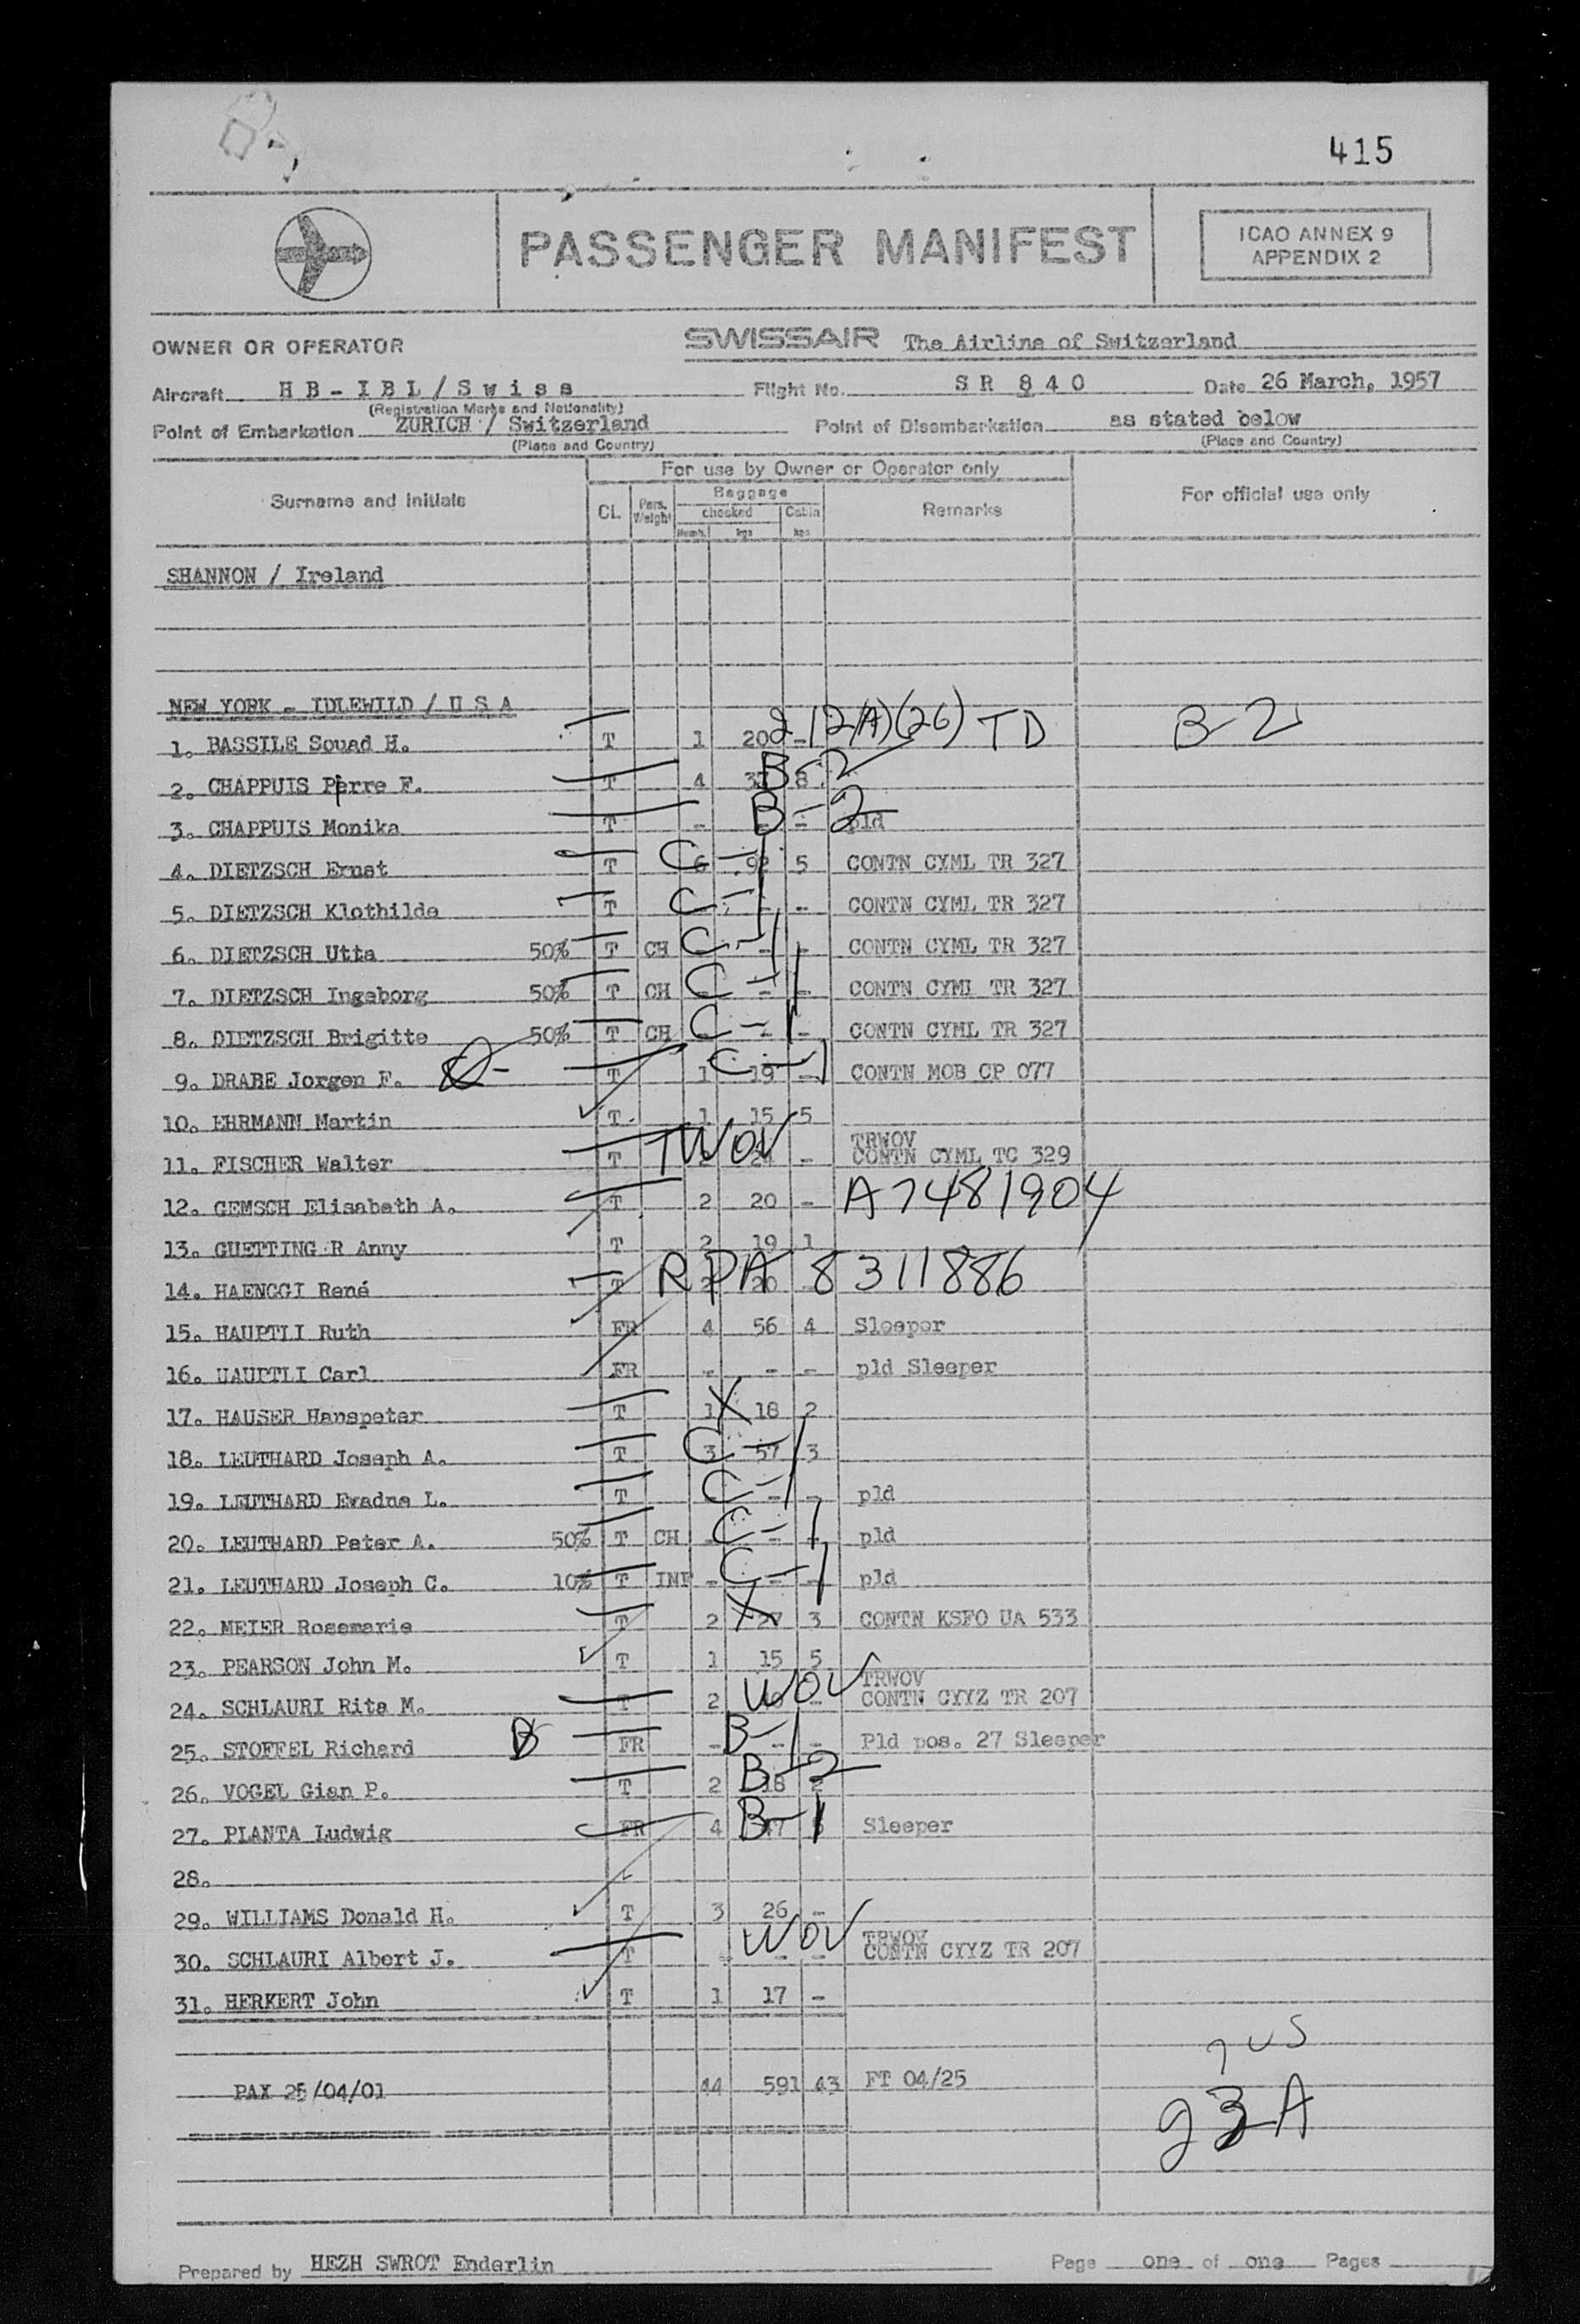 415
PASSENGER MANIFEST
ICAO ANNEX 9
APPENDIX 2
OWNER OR OPERATOR SWISSAIR The Airline of Switzerland
Aircraft HB-IBL/Swiss Flight No. SR 840 Date 26 March, 1957
(Registration Marks and Nationality)
Point of Embarkation ZURICH / Switzerland Point of Disembarkation as stated below
(Place and Country) (Place and Country)
Surname and Initials For use by Owner or Operator only For official use only
CL Pers. Weight Baggage Remarks
checked Cabin
Numb. kgs kgs
SHANNON / Ireland
NEW YORK - IDLEWILD / U S A
1. BASSILE Souad H. T 1 20 - 2(2A)(26) TD B-2
2. CHAPPUIS Pierre F. T 4 B-2 8
3. CHAPPUIS Monika T - B-2 - pld
4. DIETZSCH Ernst T 6 92 5 C-1 CONTN CYML TR 327
5. DIETZSCH Klothilde T C-1 - CONTN CYML TR 327
6. DIETZSCH Utta 50% T CH C-1 - - CONTN CYML TR 327
7. DIETZSCH Ingeborg 50% T CH C-1 - - CONTN CYML TR 327
8. DIETZSCH Brigitte 50% T CH C-1 - - CONTN CYML TR 327
9. DRABE Jorgen F. T 1 19 - C-1 CONTN MOB CP 077
10. EHRMANN Martin T 1 15 5
11. FISCHER Walter T TWOV - TRWOV
CONTN CYML TC 329
12. GEMSCH Elisabeth A. T 2 20 - A7481904
13. GUETTING R Anny T 2 19 1
14. HAENGGI René T 20 RPA 8311886
15. HAUPTLI Ruth FR 4 56 4 Sleeper
16. HAUPTLI Carl FR - - - pld Sleeper
17. HAUSER Hanspeter T 1 X 18 2
18. LEUTHARD Joseph A. T 3 57 3 C-1
19. LEUTHARD Evadne L. T C-1 - - pld
20. LEUTHARD Peter A. 50% T CH - C-1 - pld
21. LEUTHARD Joseph C. 10% T INF - C-1 - pld
22. MEIER Rosemarie T 2 X 27 3 CONTN KSFO UA 533
23. PEARSON John M. T 1 15 5
24. SCHLAURI Rita M. T 2 WOV - TRWOV
CONTN CYYZ TR 207
25. STOFFEL Richard B FR - B-1 - - Pld pos. 27 Sleeper
26. VOGEL Gian P. T 2 18 2 B-2
27. PLANTA Ludwig FR 4 B-1 Sleeper
28. -
29. WILLIAMS Donald H. T 3 26 -
30. SCHLAURI Albert J. T - - - WOV TRWOV
CONTN CYYZ TR 207
31. HERKERT John T 1 17 -
7 US
PAX 25/04/01 44 591 43 FT 04/25
23A
Prepared by HEZH SWROT Enderlin Page one of one Pages